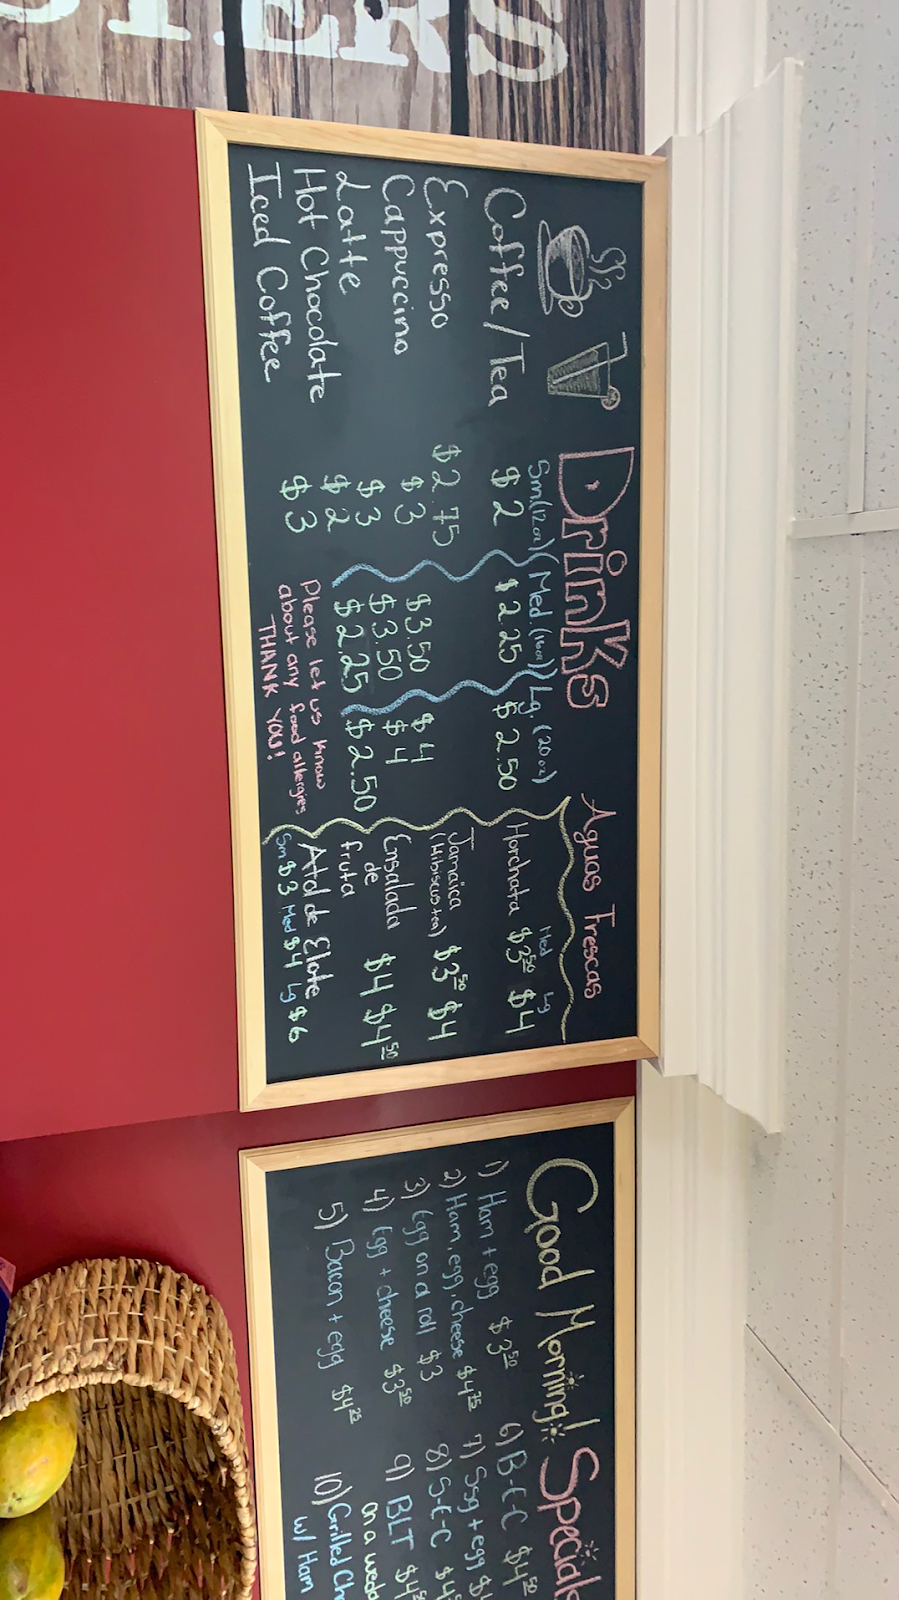 Drinks
Sm.(12oz) Med.(16oz) Lg.(20oz)
Coffee/Tea $2 $2.25 $2.50
Expresso $2.75
Cappuccino $3 $3.50 $4
Latte $3 $3.50 $4
Hot Chocolate $2 $2.25 $2.50
Iced Coffee $3
Please let us know
about any food allergies
THANK YOU!
Aguas Frescas
Med Lg
Horchata $3.50 $4
Jamaica
(Hibiscus tea) $3.50 $4
Ensalada
de
fruta $4 $4.50
Atol de Elote
Sm $3 Med $4 Lg $6
Good Morning! Specials
1) Ham + egg $3.50
2) Ham, egg, cheese $4.75
3) Egg on a roll $3
4) Egg + cheese $3.50
5) Bacon + egg $4.25
6) B-E-C $4.50
7) Ssg + egg
8) S-E-C
9) BLT
on a
10) Grilled
w/ Ham